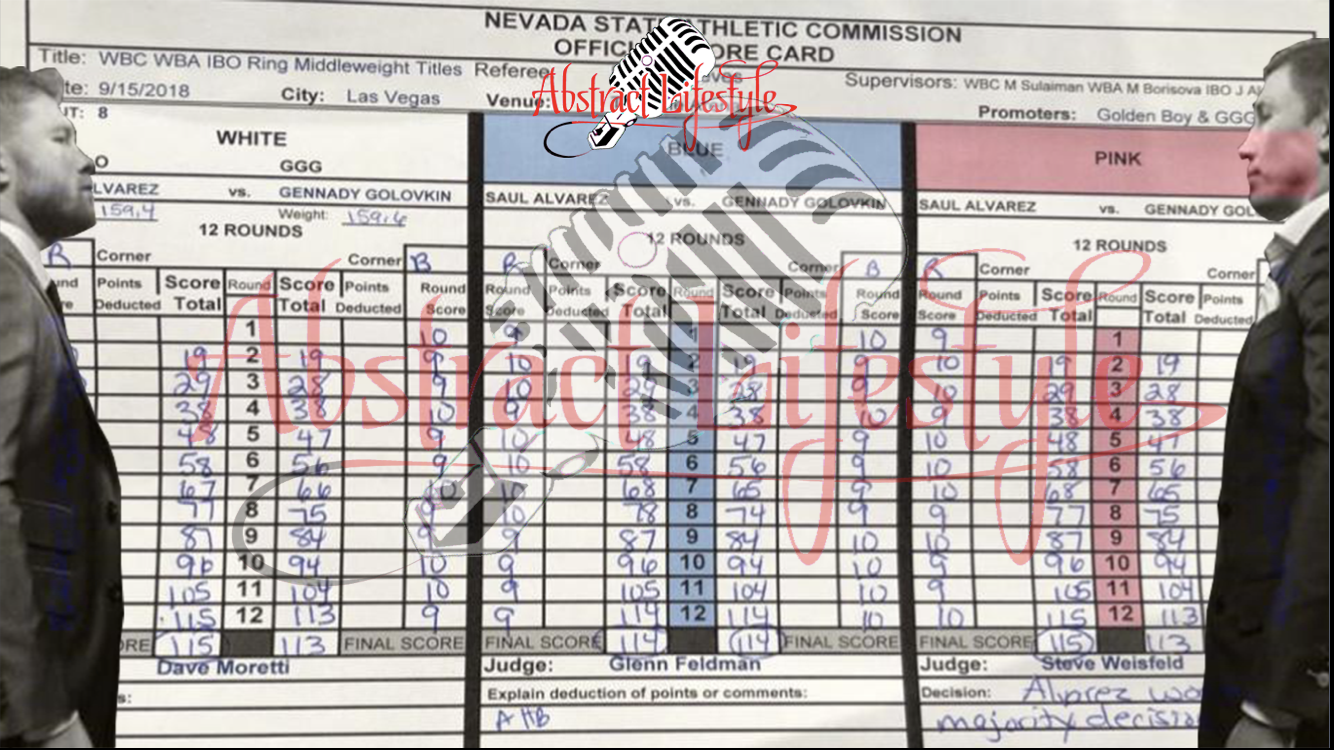 NEVADA STATE ATHLETIC COMMISSION
OFFICIAL SCORE CARD
Title: WBC WBA IBO Ring Middleweight Titles Referee
Supervisors: WBC M Sulaiman WBA M Borisova IBO J
te: 9/15/2018 City: Las Vegas Venue:
Promoters: Golden Boy & GGG
Abstract Lifestyle
UT: 8
WHITE BLUE PINK
O GGG
LVAREZ vs. GENNADY GOLOVKIN SAUL ALVAREZ vs. GENNADY GOLOVKIN SAUL ALVAREZ vs. GENNADY GOL
159.4 Weight: 159.6
12 ROUNDS 12 ROUNDS 12 ROUNDS
R Corner Corner B R Corner Corner B R Corner Corner
und Points Score Round Score Points Round Round Points Score Round Score Points Round Round Points Score Round Score Points
re Deducted Total Total Deducted Score Score Deducted Total Total Deducted Score Score Deducted Total Total Deducted
Abstract Lifestyle
1 10 9 1 10 9 1
19 2 19 9 10 19 2 19 9 10 19 2 19
29 3 28 9 10 29 3 28 9 10 29 3 28
38 4 38 10 9 38 4 38 10 9 38 4 38
48 5 47 9 10 48 5 47 9 10 48 5 47
58 6 56 9 10 58 6 56 9 10 58 6 56
67 7 66 10 68 7 65 9 10 68 7 65
77 8 75 9 10 78 8 74 9 9 77 8 75
87 9 84 9 9 87 9 84 10 10 87 9 84
96 10 94 10 9 96 10 94 10 9 96 10 94
105 11 104 10 9 105 11 104 10 9 105 11 104
115 12 113 9 9 114 12 114 10 10 115 12 113
ORE 115 113 FINAL SCORE FINAL SCORE 114 114 FINAL SCORE FINAL SCORE 115 113
Dave Moretti Judge: Glenn Feldman Judge: Steve Weisfeld
s: Explain deduction of points or comments: Decision: Alvarez wo
AHB majority decision